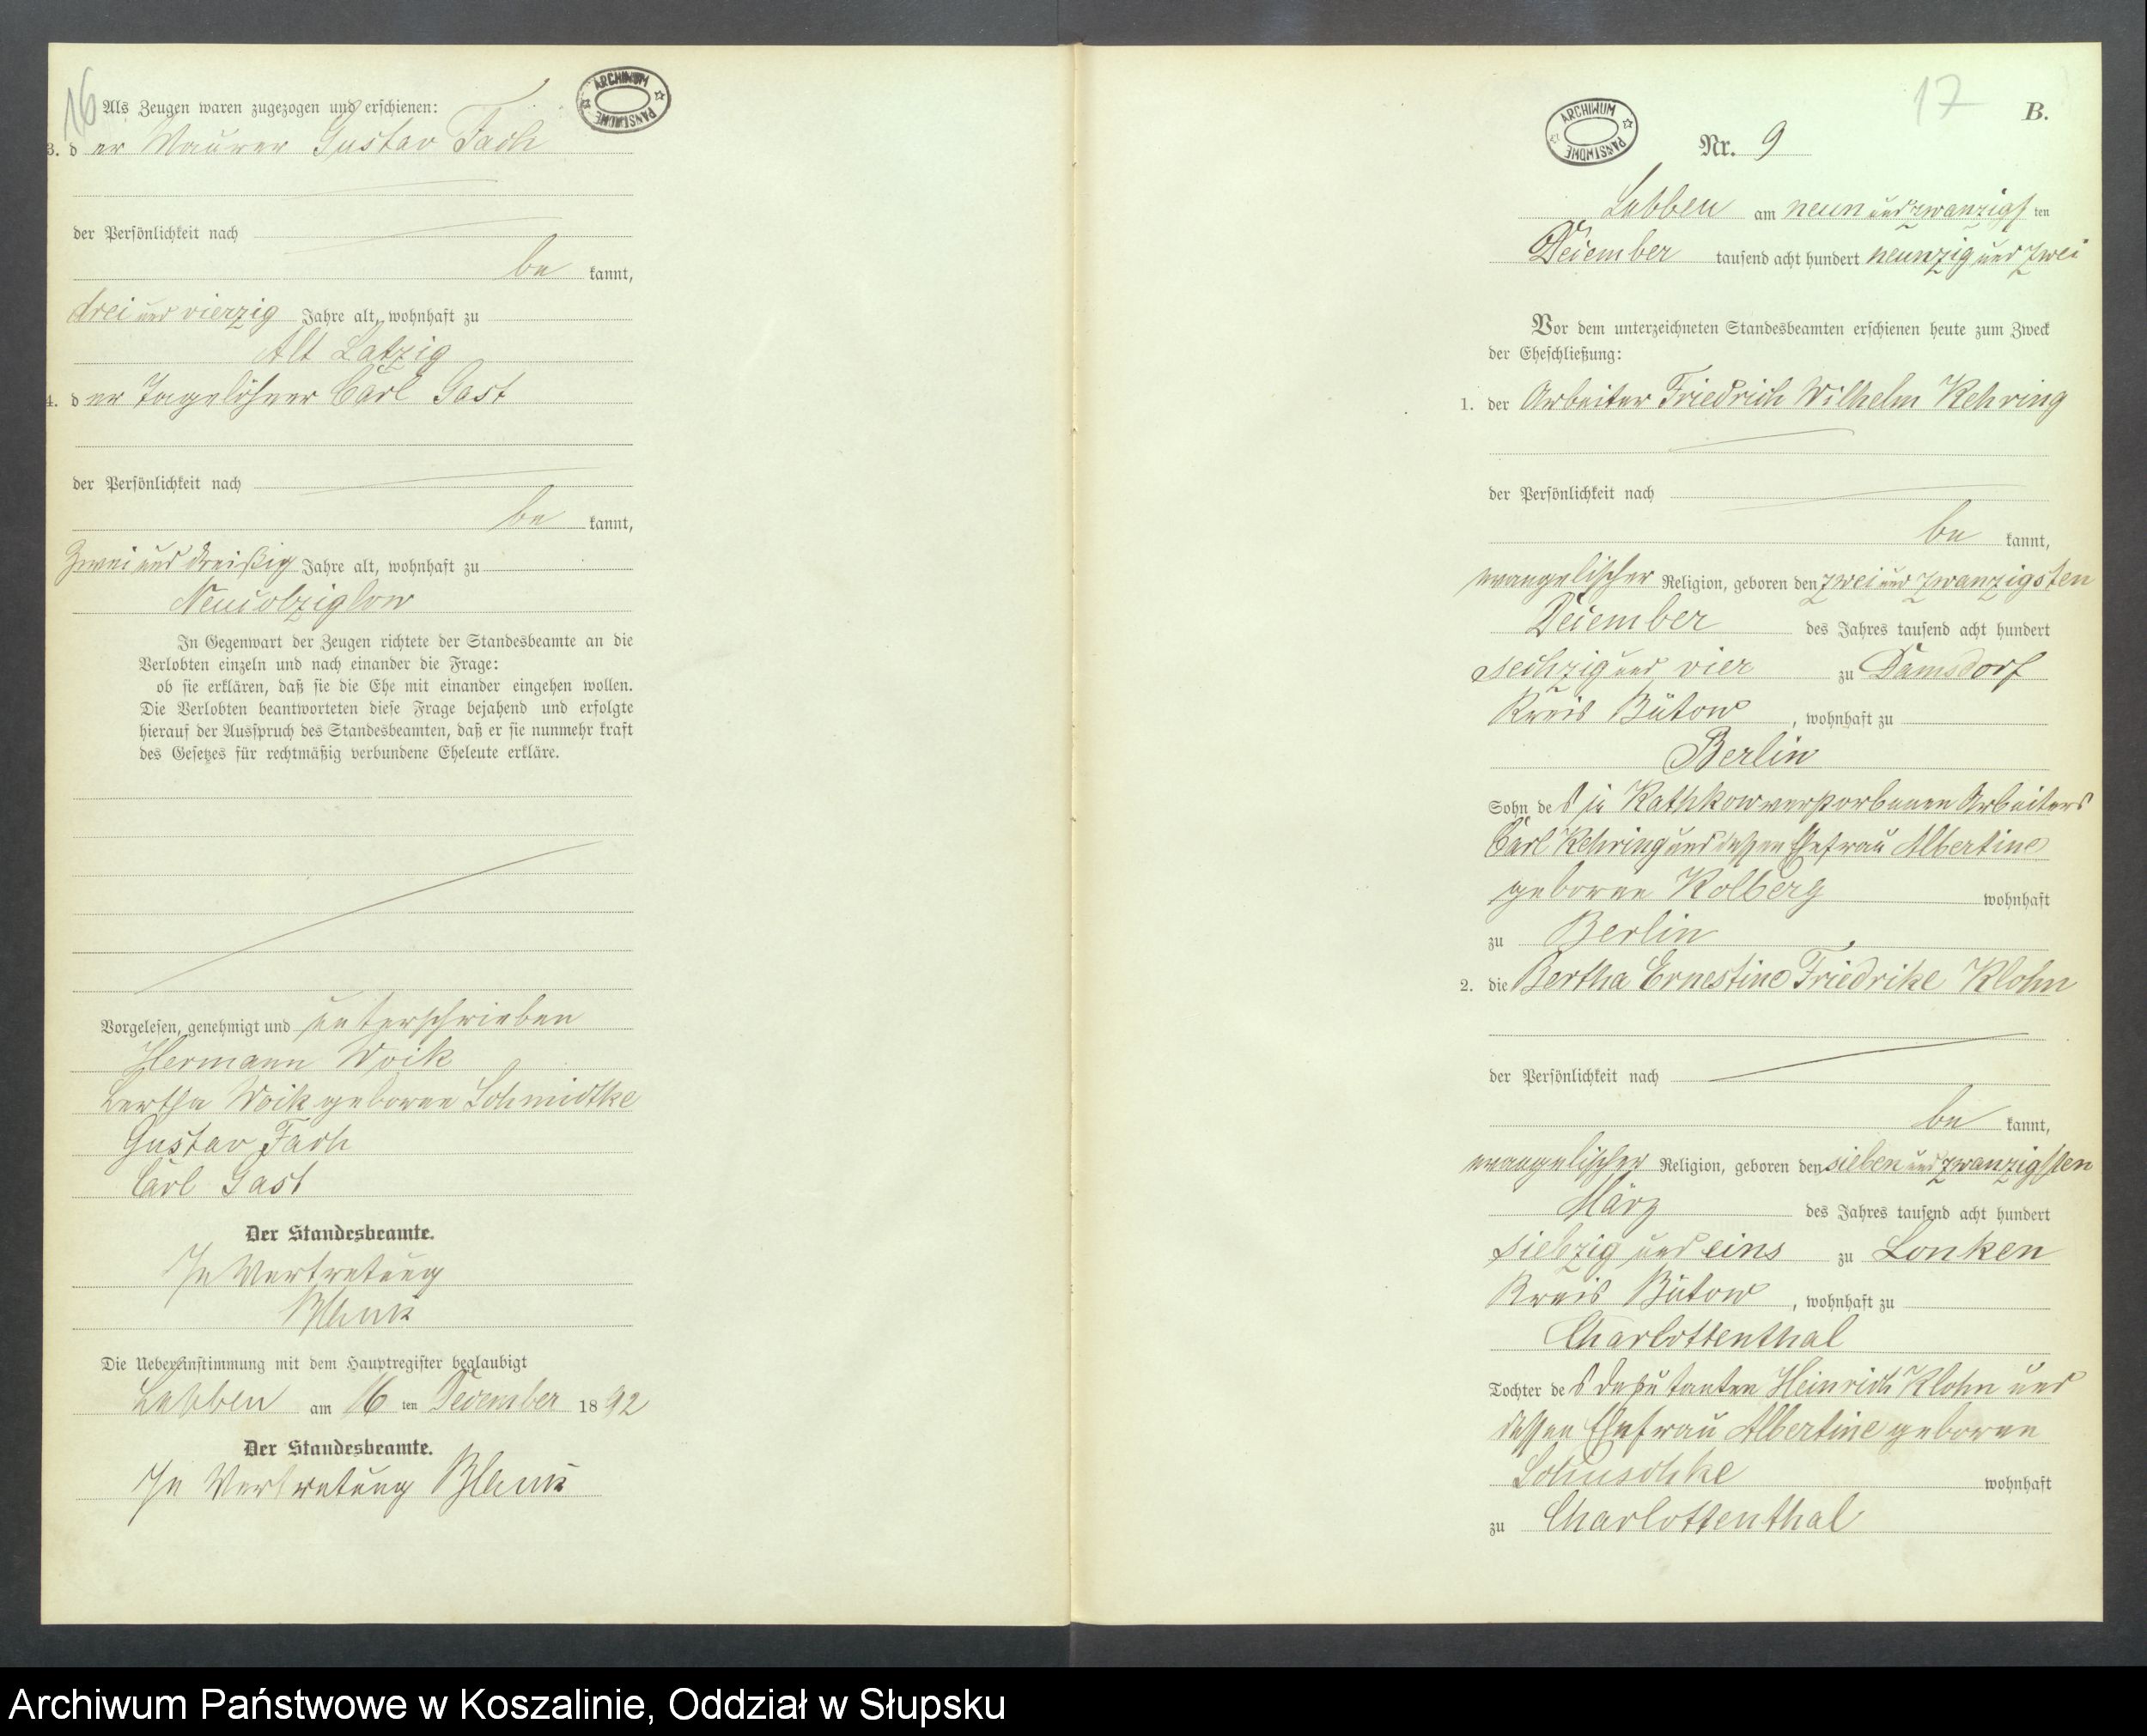 16
ARCHIWUM PAŃSTWOWE
Als Zeugen waren zugezogen und erschienen:
3. der Maurer Gustav Fach
der Persönlichkeit nach
be kannt,
drei und vierzig Jahre alt, wohnhaft zu
Alt Latzig
4. der Tagelöhner Carl Gast
der Persönlichkeit nach
be kannt,
zwei und dreißig Jahre alt, wohnhaft zu
Neucolziglow
In Gegenwart der Zeugen richtete der Standesbeamte an die
Verlobten einzeln und nach einander die Frage:
ob sie erklären, daß sie die Ehe mit einander eingehen wollen.
Die Verlobten beantworteten diese Frage bejahend und erfolgte
hierauf der Ausspruch des Standesbeamten, daß er sie nunmehr kraft
des Gesetzes für rechtmäßig verbundene Eheleute erkläre.
Vorgelesen, genehmigt und unterschrieben
Hermann Woik
Bertha Woik geborene Schmidtke
Gustav Fach
Carl Gast
Der Standesbeamte.
In Vertretung
Die Uebereinstimmung mit dem Hauptregister beglaubigt
Lubben am 16 ten December 1892
Der Standesbeamte.
In Vertretung
17
B.
ARCHIWUM PAŃSTWOWE
Nr. 9
Lubben am neun und zwanzigs ten
December tausend acht hundert neunzig und zwei
Vor dem unterzeichneten Standesbeamten erschienen heute zum Zweck
der Eheschließung:
1. der Arbeiter Friedrich Wilhelm Kehring
der Persönlichkeit nach
be kannt,
evangelischer Religion, geboren den zwei und zwanzigsten
December des Jahres tausend acht hundert
sechzig und vier zu Damsdorf
Kreis Bütow, wohnhaft zu
Berlin
Sohn des zu Rathkow verstorbenen Arbeiters
Carl Kehring und dessen Ehefrau Albertine
geborene Kolberg wohnhaft
zu Berlin
2. die Bertha Ernestine Friedrike Klohn
der Persönlichkeit nach
be kannt,
evangelischer Religion, geboren den sieben und zwanzigsten
März des Jahres tausend acht hundert
siebzig und eins zu Lonken
Kreis Bütow, wohnhaft zu
Charlottenthal
Tochter des Deputanten Heinrich Klohn und
dessen Ehefrau Albertine geborene
wohnhaft
zu Charlottenthal
Archiwum Państwowe w Koszalinie, Oddział w Słupsku